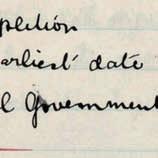 pletion
arliest date
l Government